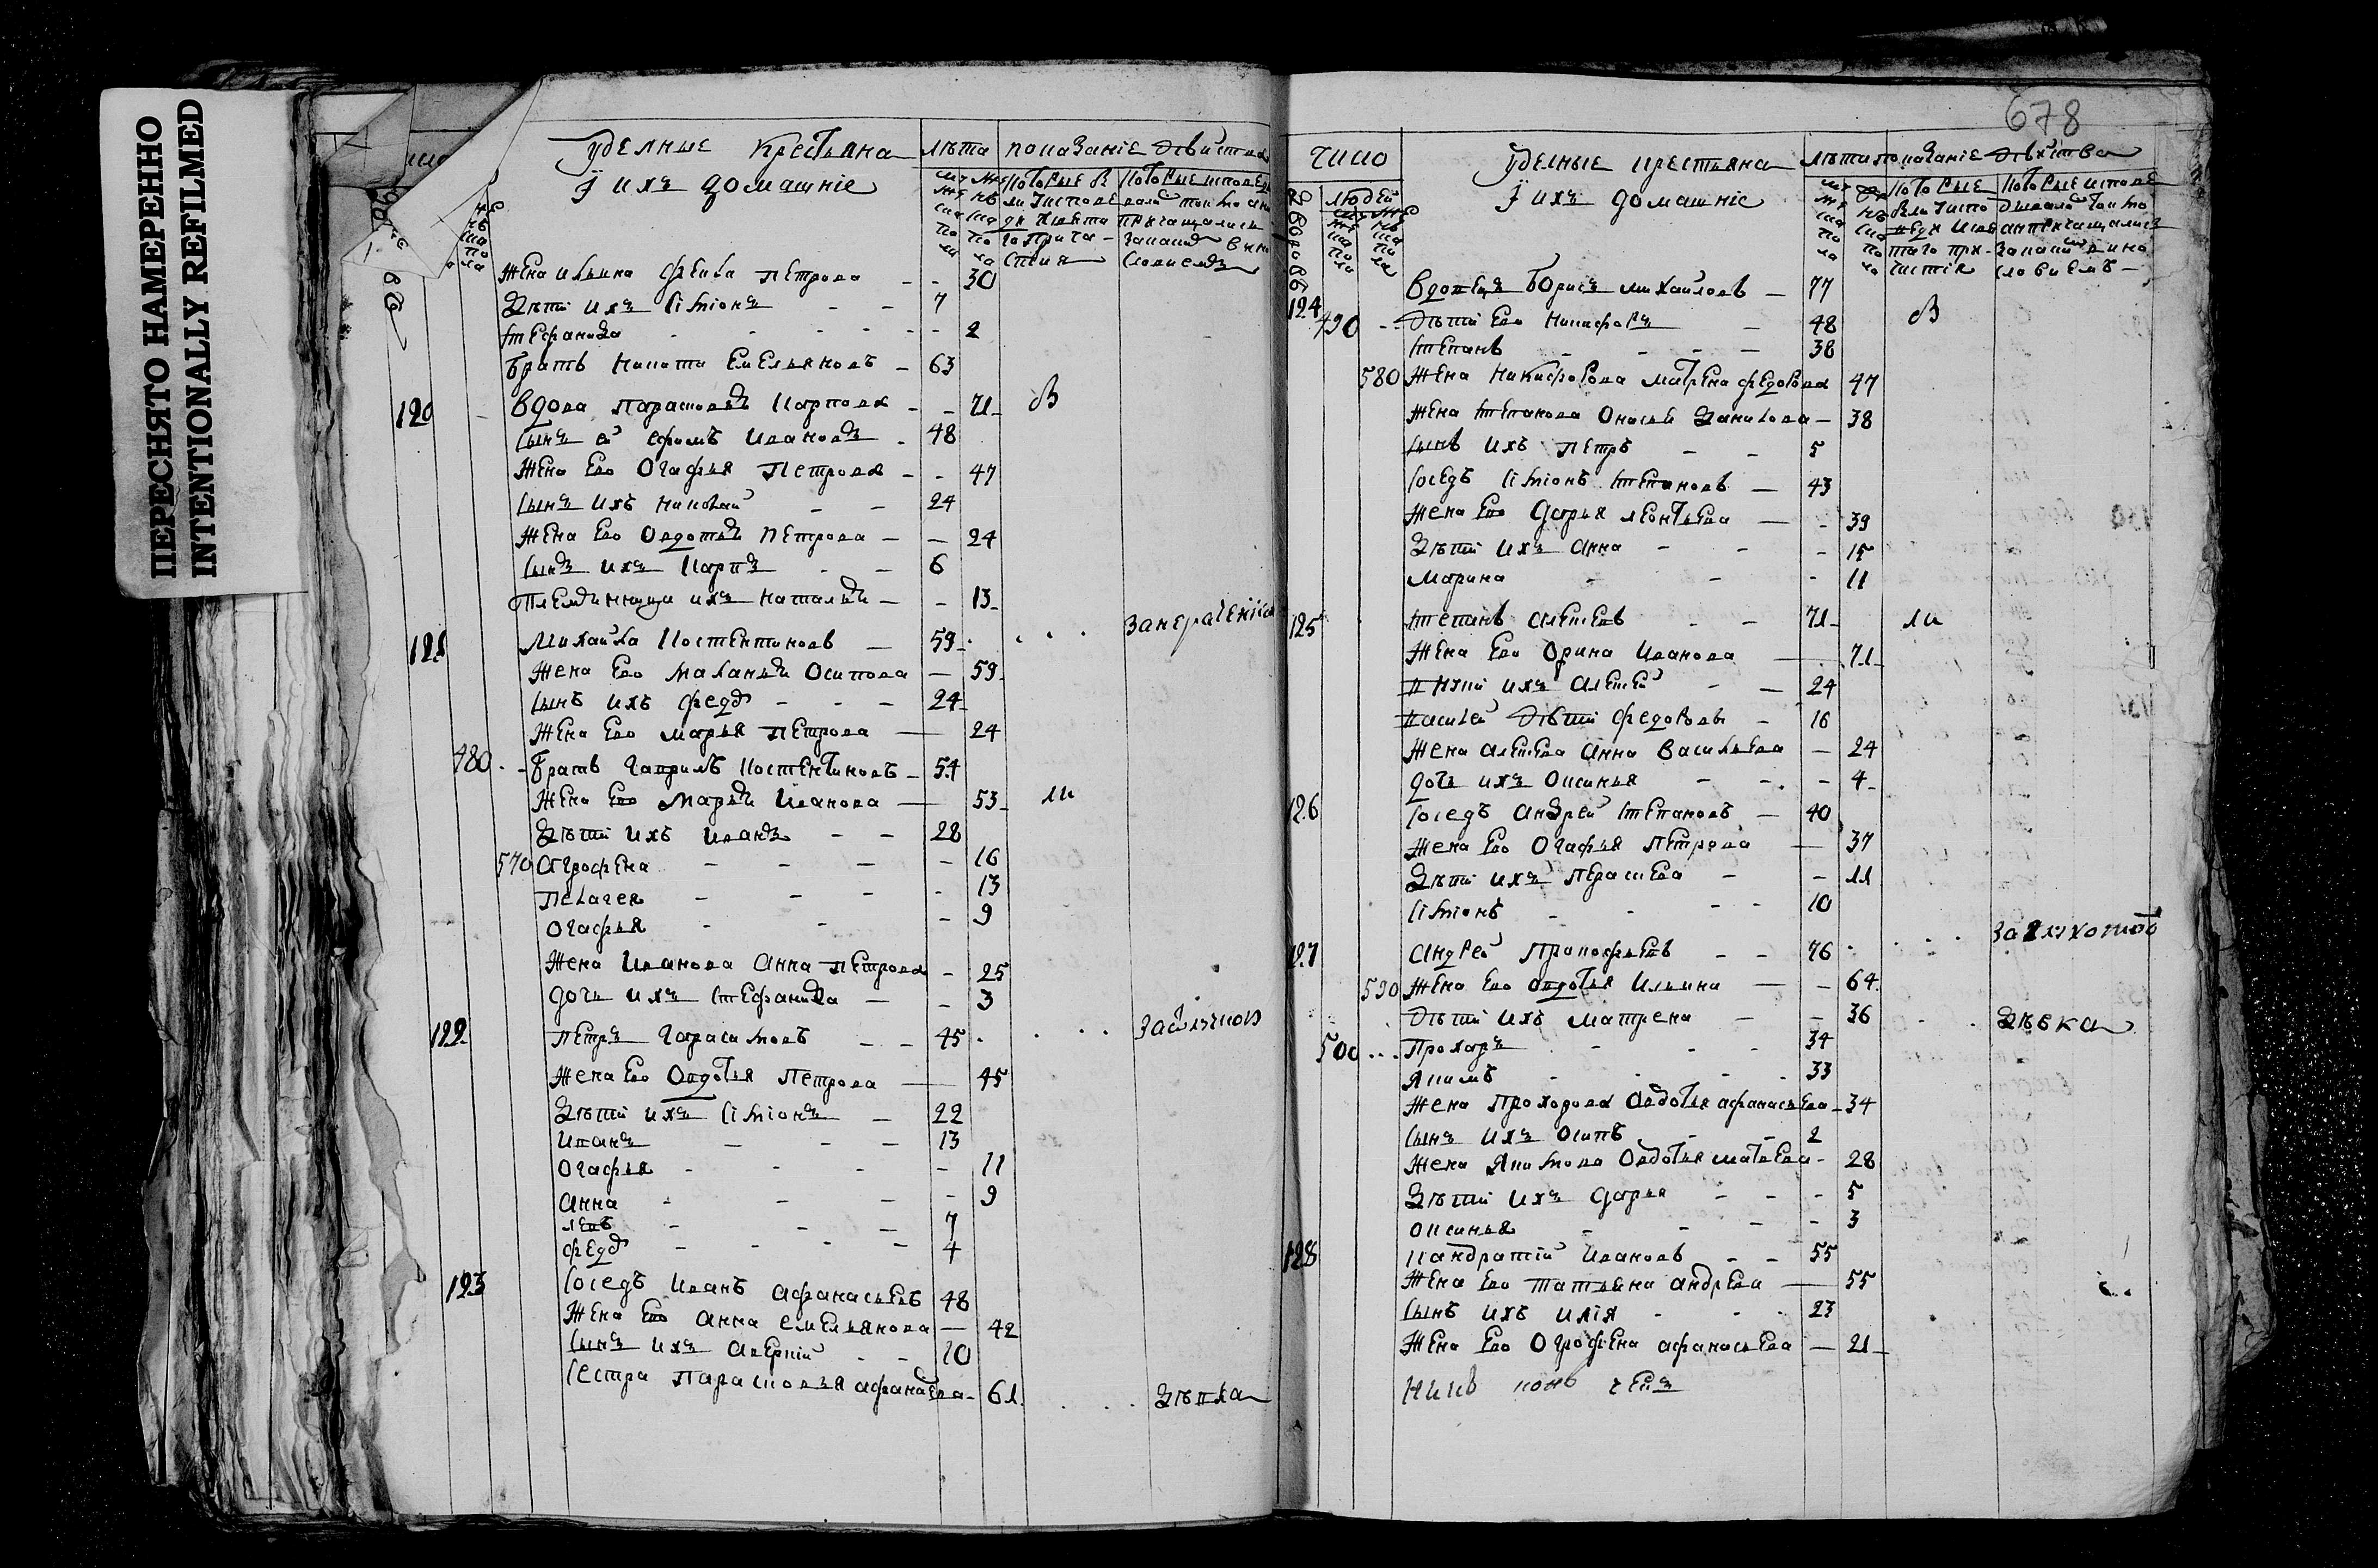 ПЕРЕСНЯТО НАМЕРЕННО
INTENTIONALLY REFILMED
Уделные крестьяна лѣта показаніе
ў ихъ домашніе
Жена Ильина Фекла Петрова 30
Дѣти ихъ Симіонъ 7
Стефанида 2
братъ Никита Емельяновъ 63
120 вдова Парасковья Карпова 71 в
сынъ ей Ефимъ Ивановъ 48
Жена Ево Огафья Петрова 47
сынъ ихъ Николай 24
Жена Ево Овдотья Петрова 24
сынъ ихъ Карпъ 6
племянница ихъ Наталья 13
121 Михайла Костентиновъ 59
Жена Ево Маланья Осипова 59
сынъ ихъ Федоръ 24
Жена Ево Марья Петрова 24
480 братъ Гаврилъ Костентиновъ 54
Жена Ево Марья Иванова 53
Дѣти ихъ Иванъ 28
570 Агрофена 16
Пелагея 13
Огафья 9
Жена Иванова Анна Петрова 25
дочь ихъ Стефанида 3
122 Петръ Гарасимовъ 45
Жена Ево Овдотья Петрова 45
Дѣти ихъ Симіонъ 22
Иванъ 13
Огафья 11
Анна 9
левъ 7
федоръ 4
123 сосѣдъ Иванъ Афанасьевъ 48
Жена Ево Анна Емельянова 42
сынъ ихъ Аверкій 10
сестра Парасковья Афанасева 61 дѣвка
678
число уделные крестьяна лѣта показаніе
людей ў ихъ домашніе
124 вдовецъ Борисъ Михайловъ 77
490 дѣти Ево Никифоръ 48 в
Степанъ 38
580 Жена Никифорова Матрена Федорова 47
Жена Степанова Онисья Данилова 38
сынъ ихъ Петръ 5
сосѣдъ Симіонъ Степановъ 43
Жена Ево Дарья Леонтьева 39
Дѣти ихъ Анна 15
Марина 11
125 Степанъ Алексеевъ 71
Жена Ево Орина Иванова 71
внуки ихъ Алексей 24
Василей дѣти Федоровы 16
Жена Алексева Анна Васильева 24
дочь ихъ Оксинья 4
126 сосѣдъ Андрей Степановъ 40
Жена Ево Огафья Петрова 37
Дѣти ихъ 11
Симіонъ 10
127 Андрей Прокофьевъ 76
590 Жена Ево Овдотья Ильина 64
дѣти ихъ Матрена 36 дѣвка
500 Прохаръ 34
Якимъ 33
Жена Прохорова Овдотья Афанасьева 34
сынъ ихъ Осипъ 2
Жена Якимова Овдотья Матвева 28
Дѣти ихъ Дарья 5
Оксинья 3
128 Кандратій Ивановъ 55
Жена Ево Татьяна Андрева 55
сынъ ихъ Илія 23
Жена Ево Огрофена Афанасьева 21